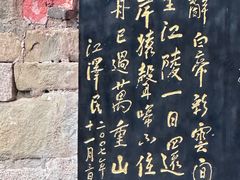 辭白帝彩雲間
里江陵一日還
岸猿聲啼不住
舟已過萬重山
江澤民
二〇〇七年
十一月